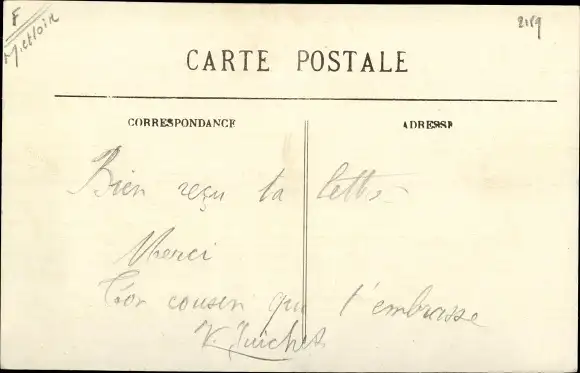 F
M. et Loir
2189
CARTE POSTALE
CORRESPONDANCE
ADRESSE
Bien reçu ta lettre
Merci
Ton cousin qui t'embrasse
V. Guichet